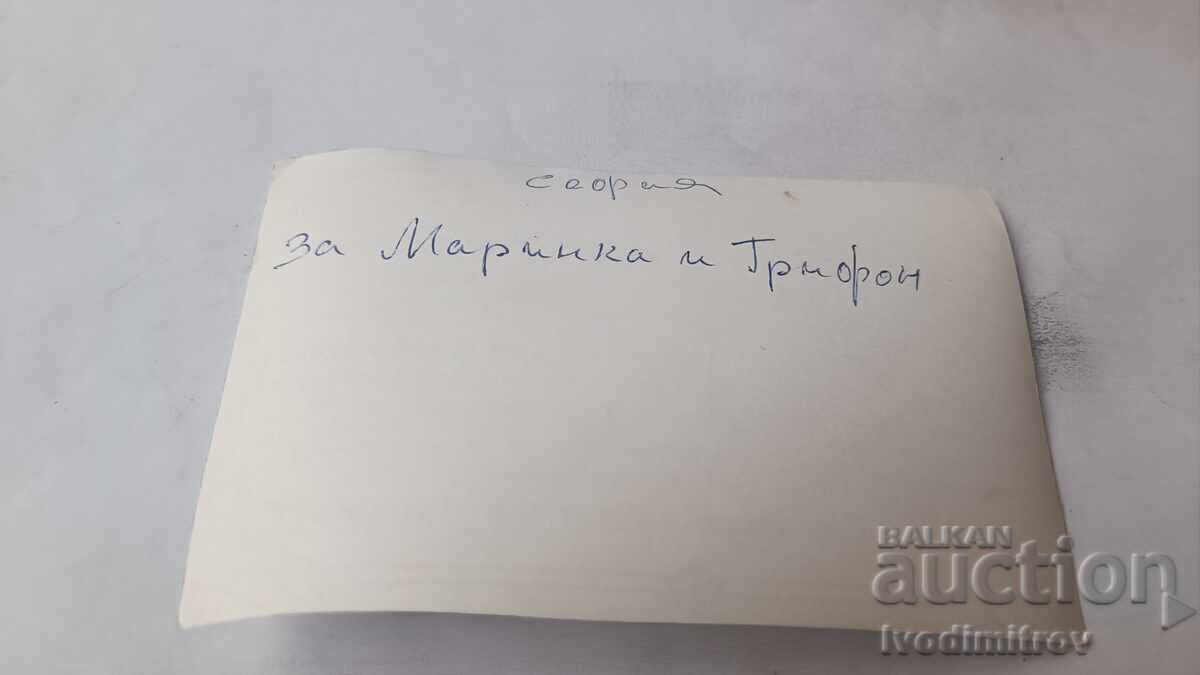 София
за Маринка и Трифон
BALKAN
auction
Ivodimitrov